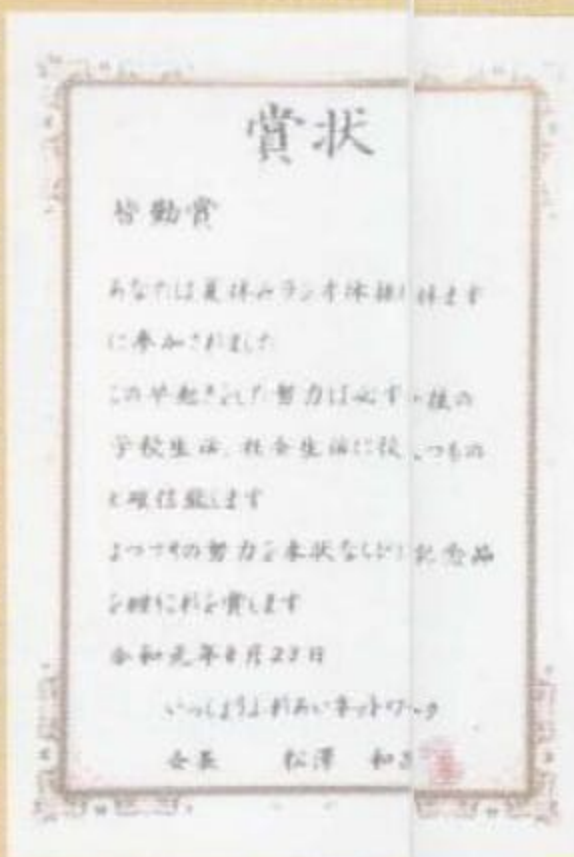 賞状
皆勤賞
あなたは夏休みラジオ体操に休まず
に参加されました
この早起きをした努力は必ず今後の
学校生活、社会生活に役立つもの
と確信致します
よってその努力を本状ならびに記念品
を贈りこれを賞します
令和元年8月23日
いっしょうふれあいネットワーク
会長 松澤 和